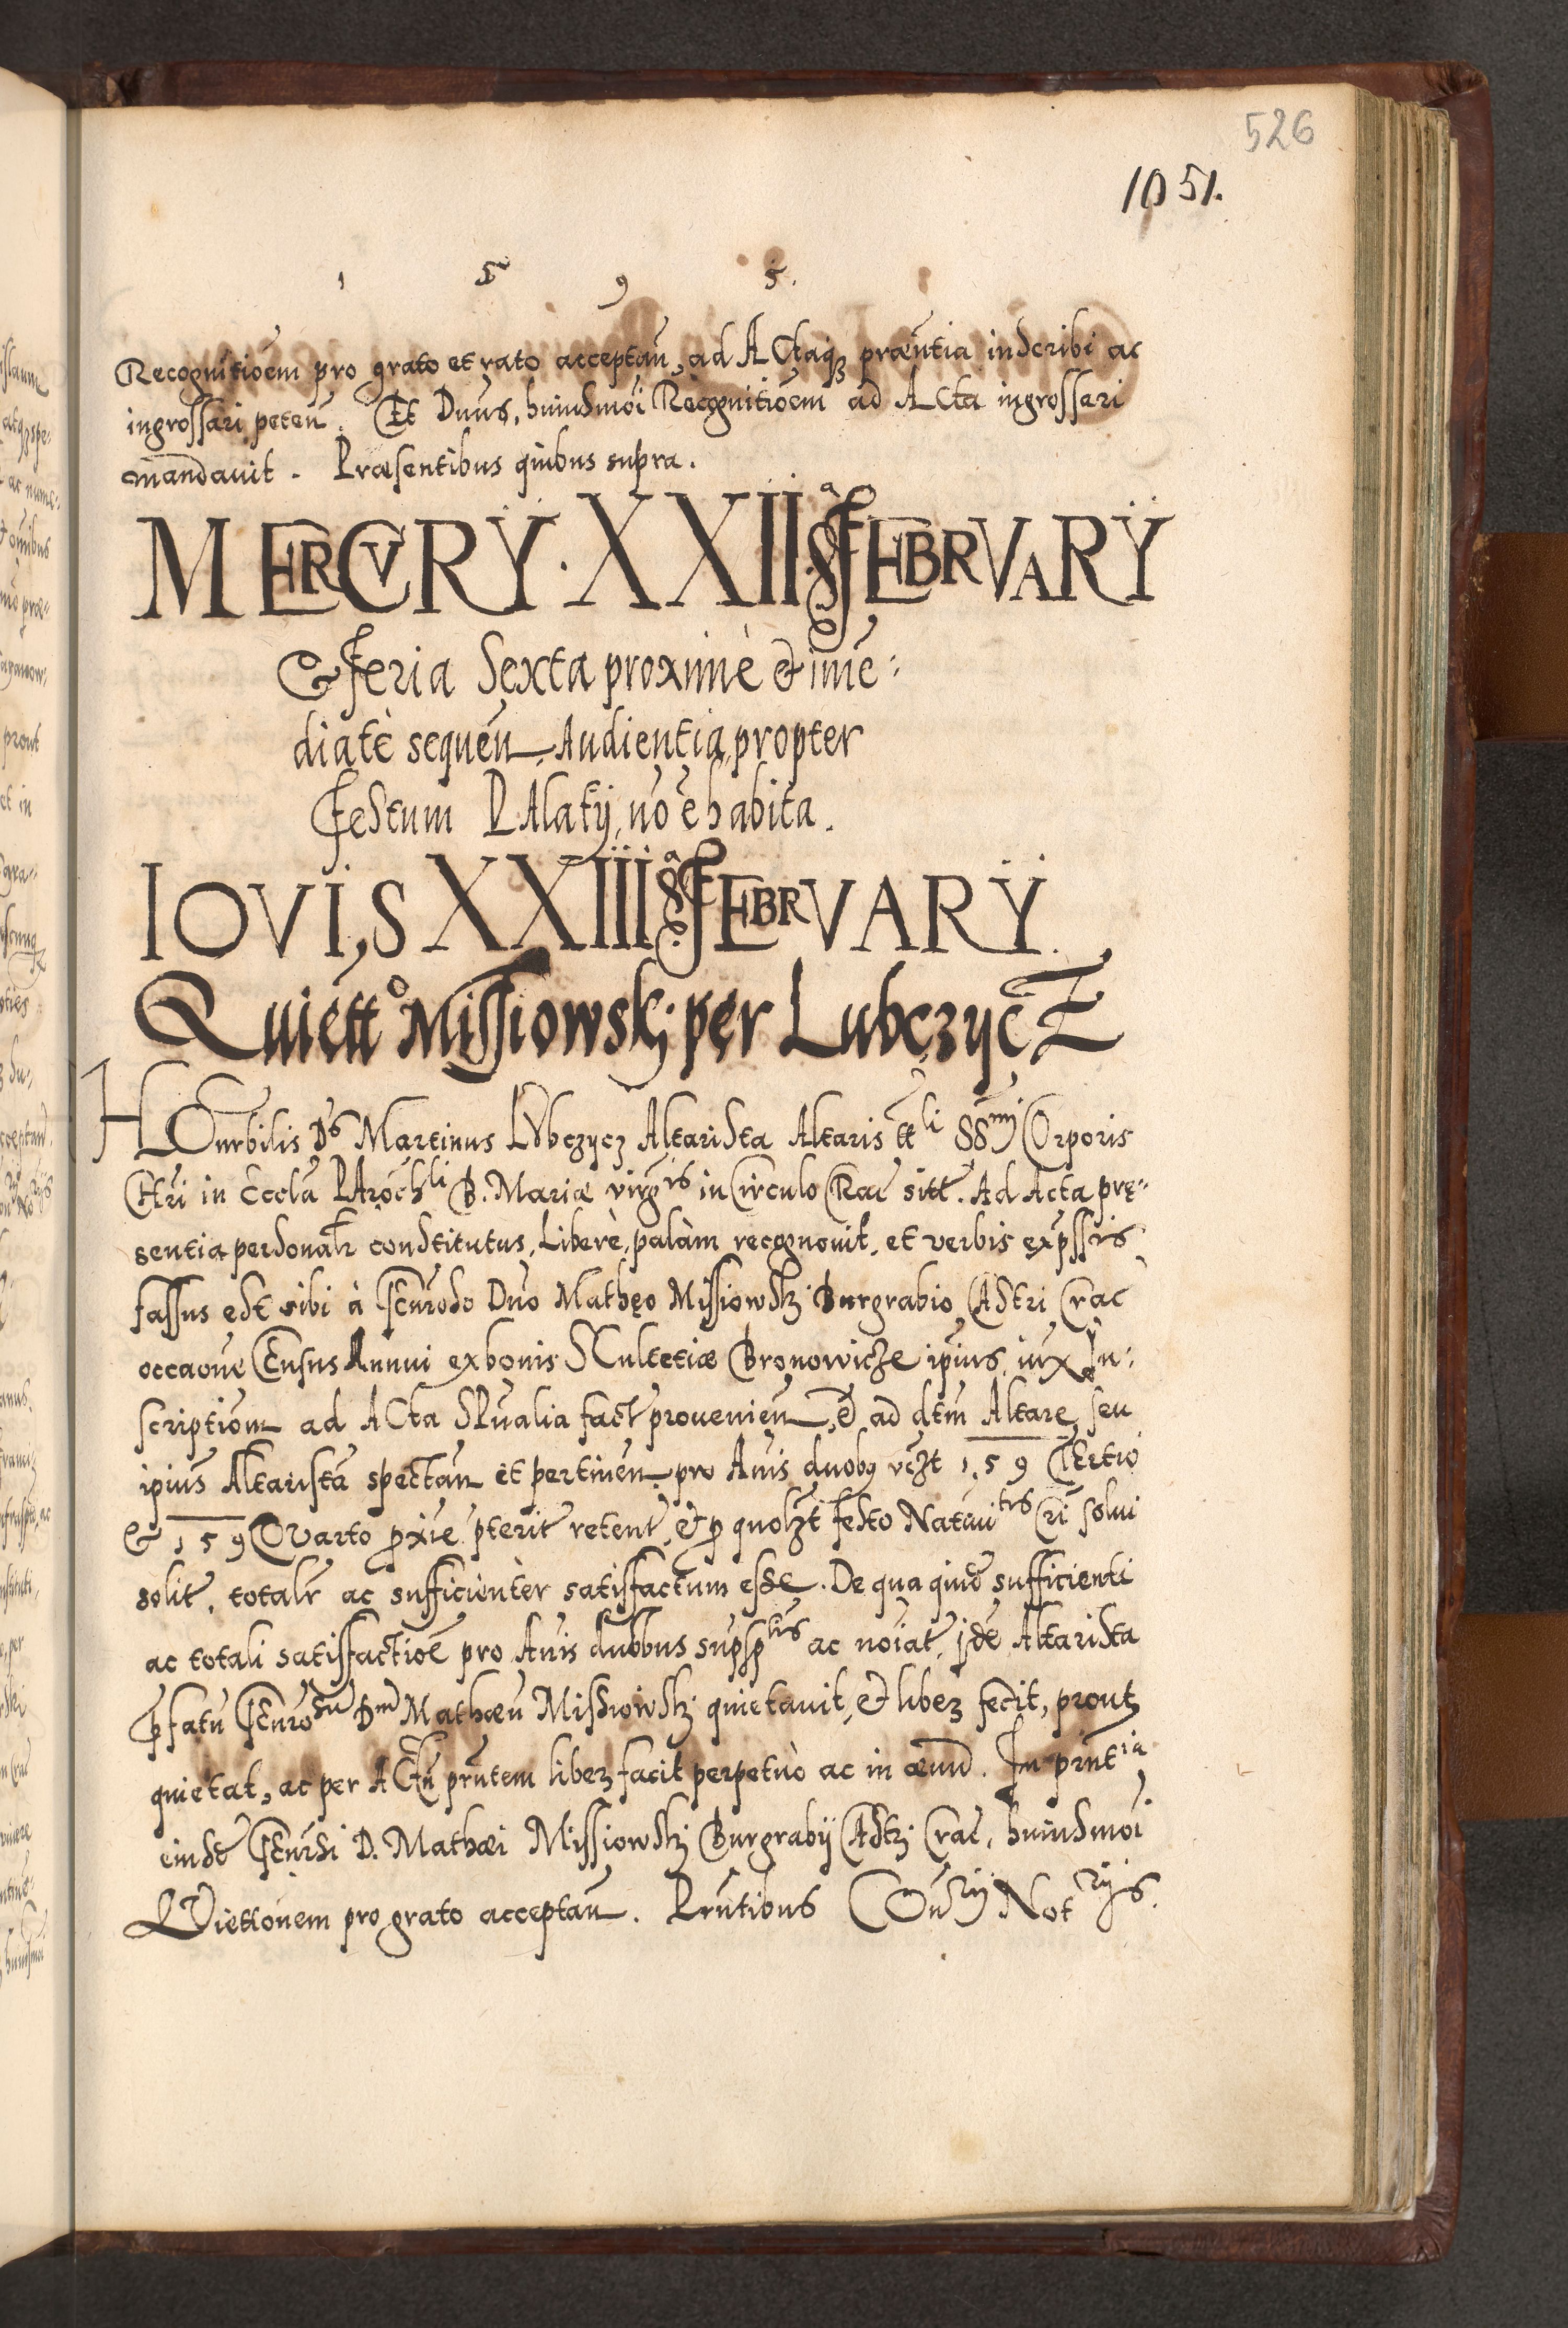 526
1051.
1 5 9 5.
Recognitioem pro grato et rato acceptan̄, ad ACtaqꝫ præntia inscribi ac
ingrossari peten̄. Et Dnus, huiusmoi Recognitioem ad ACta ingrossari
mandavit. Præsentibus quibus supra.
MERCVRŸ. XXII FEBRVARŸ
& Feria Sexta proximè & imē:
diatè sequen̄, Audientia, propter
Festum PAlatij, nō ē habita.
IOVIS XXIII FEBRVARŸ.
Quiett° Missiowskj per Lubczycz
HOnrbilis Ds Martinus LVbczycz Altarista Altaris ttli SSmj COrporis
CHri in Eccla PArochli B. Mariæ virgis in Circulo CRac sitt. Ad Acta prę-
sentia personalr constitutus, Liberè, palàm recognovit, et verbis expssis
fassus est sibi à GEnroso Dno Mathęo Missiowskj Burgrabio CAstri Crac
occaone CEnsus Annui ex bonis SCultetiæ Bronowicze ipius, iux In:
scriptiom ad ACta SPualia fact provenien̄, & ad dtm Altare, seu
ipius Altaristā spectan̄ et pertinen̄, pro Anis duobꝯ vczt 159 TErtio
& 159 QVarto pxie pterit retent, & p quolzt festo Nativitis Cri solvi
solit, totalr ac sufficientèr satisfactum esse. De qua quidē sufficienti
ac totali satisfactioē pro Anis duobus supsptis ac noiat, idē Altarista
Pfatū GEnrosū Dnm Mathæū Missiowskj quietavit, & liberꝫ fecit, prout
quietat, ac per ACtū prntem liberꝫ facit perpetuò ac in ævum. In prntia
eiusdē GEnrsi D. Mathæi Missiowskj Burgrabij CAstrj Crac, huiusmoi
QVietionem pro grato acceptan̄. Prntibus COnrij Notrijs.